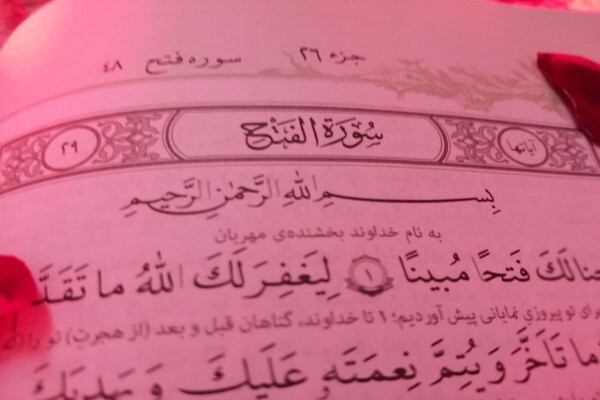 جزء ۲۶ سوره فتح ۴۸
آیاتها سُورَةُ الفَتْحِ ۲۹
بِسْمِ اللهِ الرَّحْمٰنِ الرَّحِيمِ
به نام خداوند بخشنده‌ی مهربان
لَكَ فَتْحًا مُبِينًا ۱ لِيَغْفِرَ لَكَ اللهُ ما تَقَدَّ
برای تو پیروزی نمایانی پیش آوردیم؛ ۱ تا خداوند، گناهان قبل و بعد (از هجرت) تو را
ما تَأَخَّرَ وَ يُتِمَّ نِعمَتَهٗ عَلَيكَ وَ يَهدِيَكَ